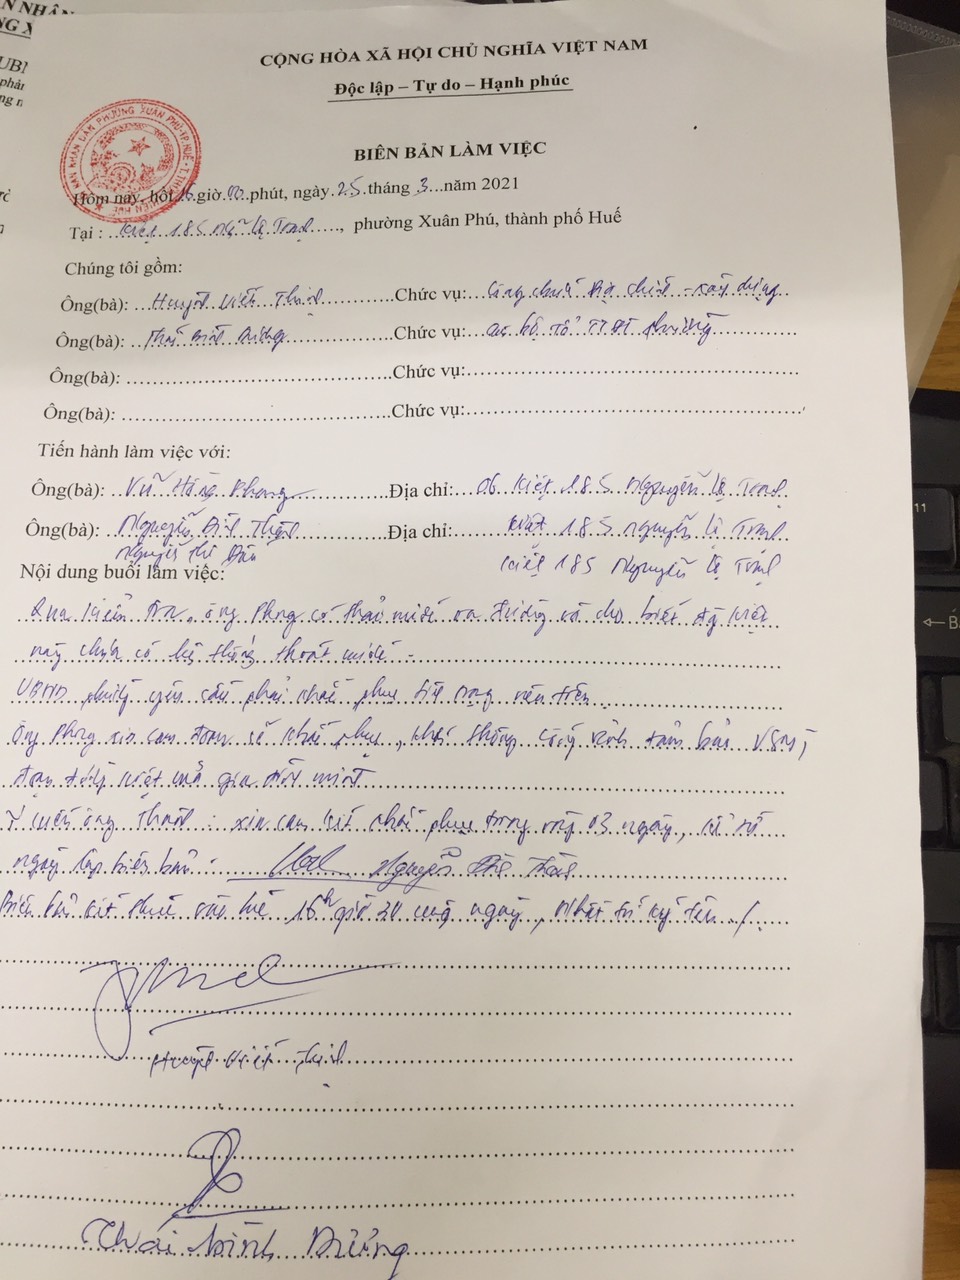 N NHÂN
NG X
UBN
CỘNG HÒA XÃ HỘI CHỦ NGHĨA VIỆT NAM
Độc lập – Tự do – Hạnh phúc
BIÊN BẢN LÀM VIỆC
Hôm nay, hồi 16 giờ 00 phút, ngày 25 tháng 3 năm 2021
Tại : Kiệt 185 Nguyễn Lộ Trạch, phường Xuân Phú, thành phố Huế
Chúng tôi gồm:
Ông(bà): Huỳnh Viết Thịnh Chức vụ: Công chức Địa chính - xây dựng
Ông(bà): Thái Bình Dương Chức vụ: cán bộ tổ TTĐT phường
Ông(bà): Chức vụ:
Ông(bà): Chức vụ:
Tiến hành làm việc với:
Ông(bà): Vũ Hồng Phong Địa chỉ: 06 Kiệt 185 Nguyễn Lộ Trạch
Ông(bà): Nguyễn Đình Địa chỉ: Kiệt 185 Nguyễn Lộ Trạch
Nguyễn Thị Kiệt 185 Nguyễn Lộ Trạch
Nội dung buổi làm việc:
Qua kiểm tra, ông Phong có thải nước ra đường và cho biết tại kiệt
này chưa có hệ thống thoát nước.
UBND phường yêu cầu phải khắc phục tình trạng nêu trên.
Ông Phong xin cam đoan sẽ khắc phục, khơi thông cống rãnh đảm bảo VSMT
đoạn đường kiệt của gia đình mình
Ý kiến ông : xin cam kết khắc phục trong vòng 03 ngày, kể từ
ngày lập biên bản. Nguyễn Đình
Biên bản kết thúc vào lúc 16h giờ 30 cùng ngày, nhất trí ký tên ./.
Huỳnh Viết Thịnh
Thái Bình Dương